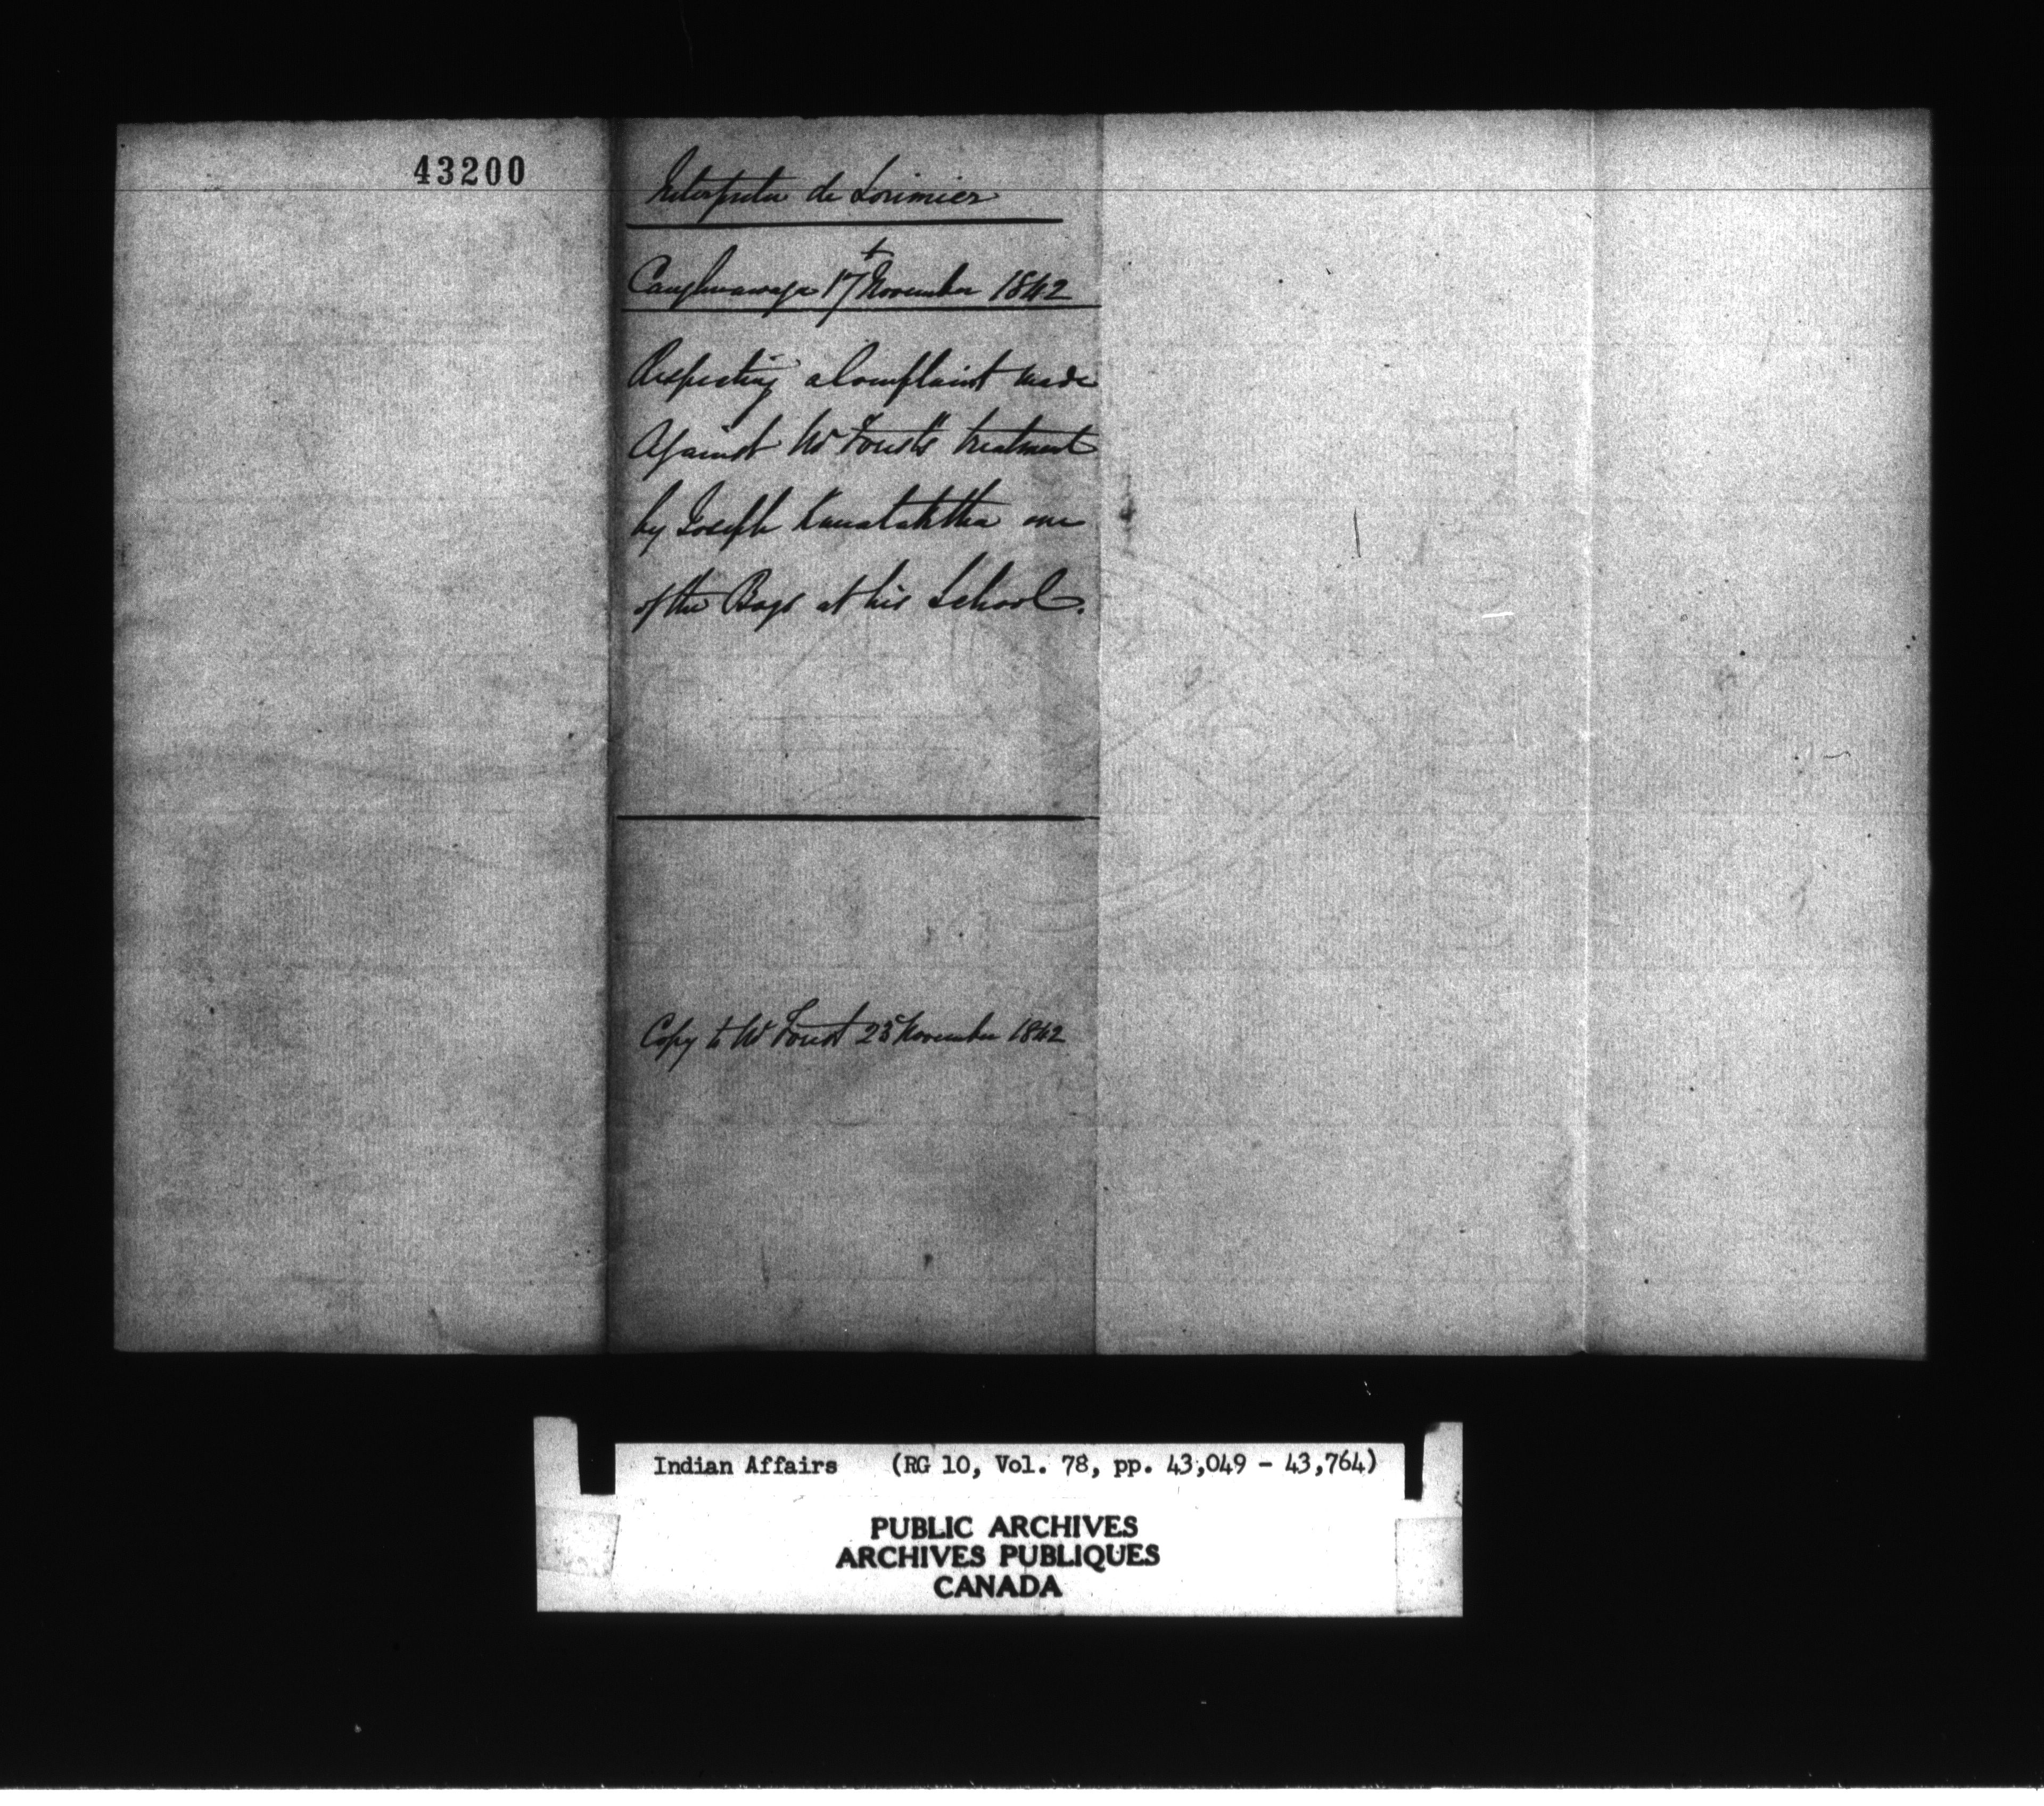 43200
Interpreter de Lorimier
Caughnawaga 17t November 1842
Respecting a Complaint made
Against Mr Forest's treatment
by Joseph one
of the Boys at his School.
Copy to Mr Forest November 1842
Indian Affairs (RG 10, Vol. 78, pp. 43,049 - 43,764)
PUBLIC ARCHIVES
ARCHIVES PUBLIQUES
CANADA